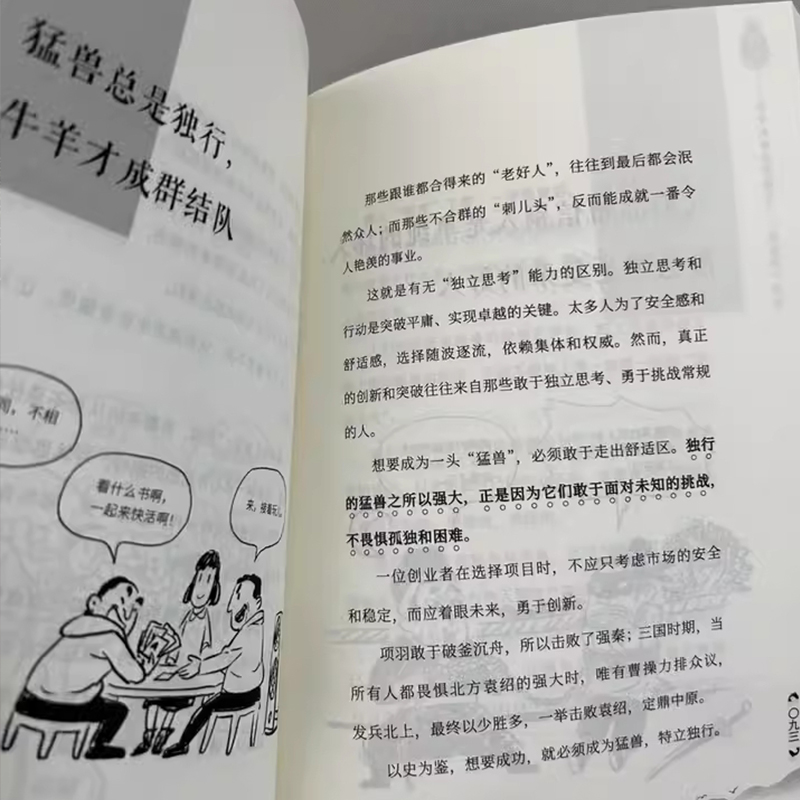 猛兽总是独行，
牛羊才成群结队
不相
……
看什么书啊，
一起来快活啊！
来，接着玩儿
那些跟谁都合得来的“老好人”，往往到最后都会泯
然众人；而那些不合群的“刺儿头”，反而能成就一番令
人艳羡的事业。
这就是有无“独立思考”能力的区别。独立思考和
行动是突破平庸、实现卓越的关键。太多人为了安全感和
舒适感，选择随波逐流，依赖集体和权威。然而，真正
的创新和突破往往来自那些敢于独立思考、勇于挑战常规
的人。
想要成为一头“猛兽”，必须敢于走出舒适区。独行
的猛兽之所以强大，正是因为它们敢于面对未知的挑战，
不畏惧孤独和困难。
一位创业者在选择项目时，不应只考虑市场的安全
和稳定，而应着眼未来，勇于创新。
项羽敢于破釜沉舟，所以击败了强秦；三国时期，当
所有人都畏惧北方袁绍的强大时，唯有曹操力排众议，
发兵北上，最终以少胜多，一举击败袁绍，定鼎中原。
以史为鉴，想要成功，就必须成为猛兽，特立独行。
〇九三